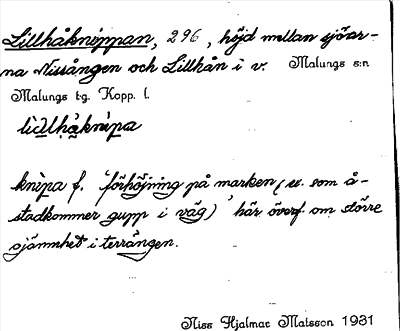 Lillhåknöppan, 296, höjd mellan sjöar-
na Nissången och Lillhån i v. Malungs s:n
Malungs t:g. Kopp. l.
knìpa f. 'förhöjning på marken (u. som å-
stadkommer gupp i väg)' här överf. om större
ojämnhet i terrängen.
Niss Hjalmar Matsson 1931